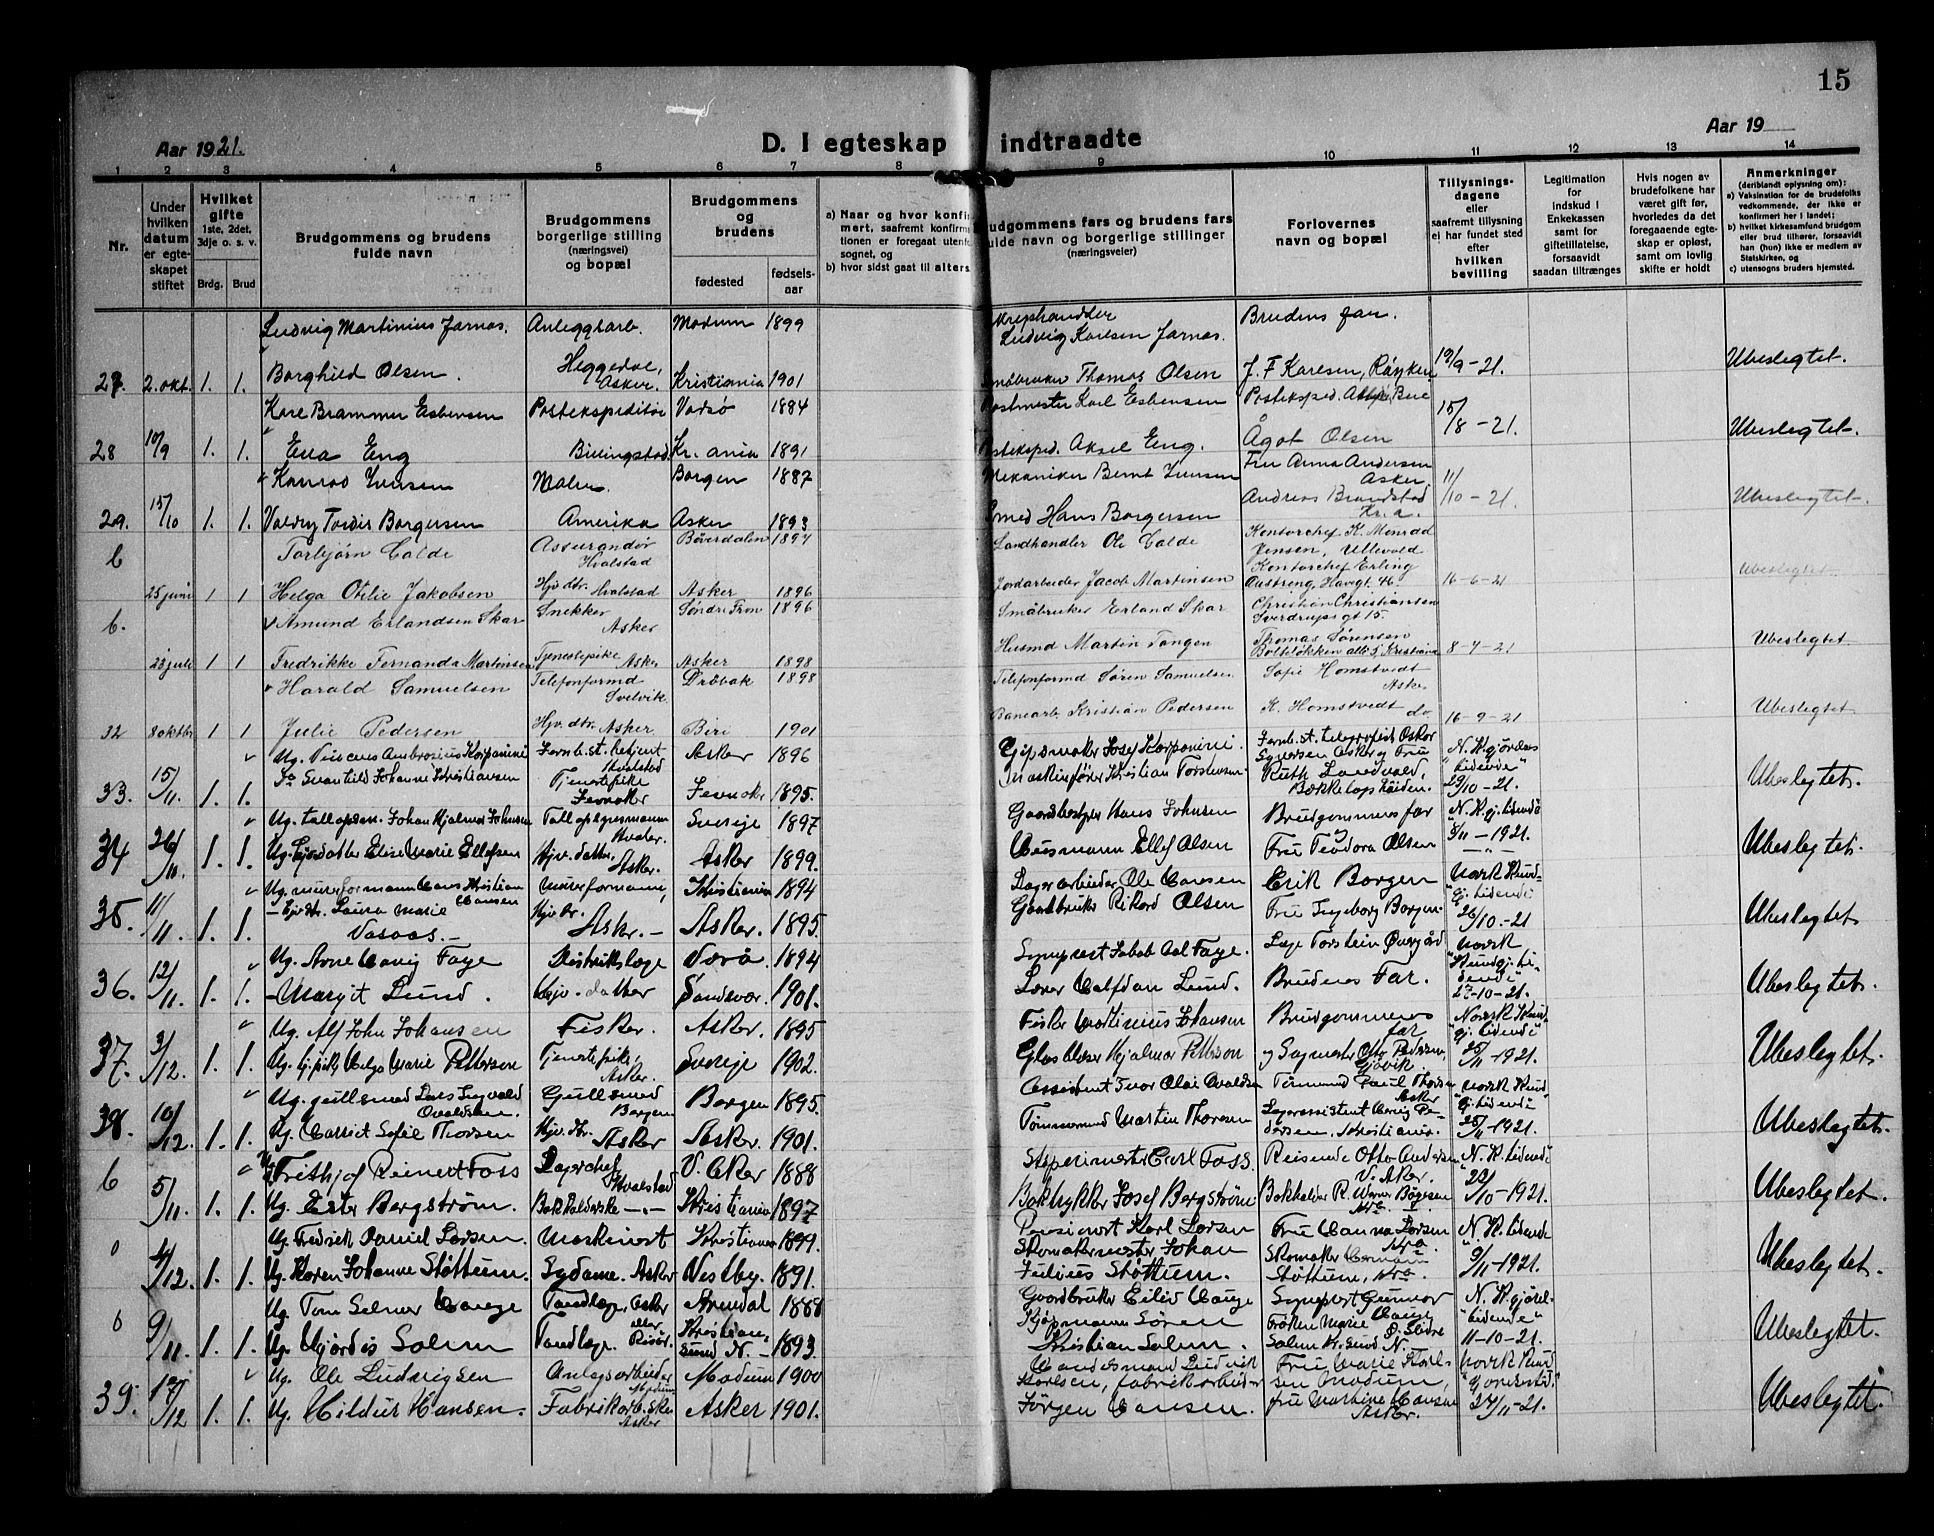 15
Aar 1921.
D. I egteskap indtraadte
Aar 19
1 2 3 4 5 6 7 8 9 10 11 12 13 14
Nr.
Under hvilken datum er egteskapet stiftet
Hvilket gifte 1ste, 2det, 3dje o. s. v.
Brdg. Brud
Brudgommens og brudens fulde navn
Brudgommens borgerlige stilling (næringsvei) og bopæl
Brudgommens og brudens
fødested fødselsaar
a) Naar og hvor konfirmert, saafremt konfirmationen er foregaat utenfor sognet, og
b) hvor sidst gaat til alters
Brudgommens fars og brudens fars fulde navn og borgerlige stillinger (næringsveier)
Forlovernes navn og bopæl
Tillysningsdagene eller saafremt tillysning ei har fundet sted efter hvilken bevilling
Legitimation for indskud i Enkekassen samt for giftetillatelse, forsaavidt saadan tiltrænges
Hvis nogen av brudefolkene har været gift før, hvorledes da det foregaaende egteskap er opløst, samt om lovlig skifte er holdt
Anmerkninger (deriblandt oplysning om):
a) Vaksination for de brudefolks vedkommende, der ikke er konfirmert her i landet;
b) hvilket kirkesamfund brudgom eller brud tilhører, forsaavidt han (hun) ikke er medlem av Statskirken, og
c) utensogns bruders hjemsted.
Ludvig Martinius Jarnas. Anleggsarb. Modum 1899 Ludvig Karlsen Jarnas. Brudens far.
27. 2. okt. 1. 1. Borghild Olsen. Heggedal, Asker. Kristiania 1901 Småbruker Thomas Olsen J. F. Karlsen, Røyken 19/9-21. Ubeslegtet.
Karl Brammer Esbensen Postekspeditør Vadsø 1884 Postmester Karl Esbensen Posteksped.
28 10/9 1. 1. Ena Eng Billingstad. Kr.ania 1891 Posteksped. Aksel Eng. Ågot Olsen 15/8-21. Ubeslegtet.
Konrad Iversen Maler Borgen 1887 Mekaniker Bernt Iversen Fru Anna Andersen Asker
29. 15/10 1. 1. Valdry Tordis Borgersen Amerika Asker 1893 Smed Hans Borgersen Andreas Brandstad Kr.a 11/10-21. Ubeslegtet.
b Torbjørn Galde Assurandør Hvalstad Bøverdalen 1894 Landhandler Ole Galde Kontorchef K. Monrad Jensen, Ullevold
25 juni 1 1 Helga Otilie Jakobsen Hjv. dtr. Hvalstad Asker 1896 Jordarbeider Jacob Martinsen Kontorchef Erling Austreng, Havegt. 46 16-6-21 Ubeslegtet
b. Amund Erlandsen Skar Snekker Asker Søndre Fron 1896 Småbruker Erland Skar Christian Christiansen Sverdrupsgt 15.
23 juli 1 1 Fredrikke Fernanda Martinsen Tjenestepike Asker Asker 1898 Husmd Martin Tangen Thomas Sørensen Bolteløkken alle 5, Kristiania 8-7-21 Ubeslegtet
Harald Samuelsen Telefonformd Svelvik Drøbak 1898 Telefonformd Søren Samuelsen Sofie Homstvedt Asker
32 8 oktbr 1 1 Julie Pedersen Hjv. dtr. Asker Biri 1901 Banearb. Kristian Pedersen K. Homstvedt do 16-9-21 Ubeslegtet
Ug. Vincens Ambrosius Korponini Jernb. st. betjent Hvalstad Asker 1896 Gipsmaker Josef Korponini. Jernb. st. telegrafist Oskar Syversen Asker og Fru
33. 15/11. 1. 1. Svanhild Johanne Kristiansen Tjenestepike 1895. Maskinfører Kristian Torstensen Ruth Landvald, Bækkelagshøiden. 29/10-21. Ubeslegtet.
Johan Hjalmar Johnsen Sverige 1897 Gaardbestyrer Hans Johnsen Brudgommens far N. K.gj. tidende
34 26/11. 1. 1. Elise Marie Ellefsen Hjv. datter, Asker. Asker 1899. Husmann Ellef Olsen Fru Teodora Olsen 8/11-1921. Ubeslegtet.
Ug. murerformann Hans Kristian Hansen murerformann, Kristiania 1894 Lagerarbeider Ole Hansen Erik Borgen Norsk Kundgj. tidende
35. 11/11. 1. 1. Laura Marie Vasaas. - Asker. - Asker. 1895. Gaardbruker Rikard Olsen Fru Ingeborg Borgen. 26/10-21 Ubeslegtet
Ug. Arne Hauig Faye Distriktslæge 1894 Sogneprest Jakob Aal Faye. Læge Torstein Øvergård Norsk "Kundgj. tidende"
36. 12/11. 1. 1. - Margit Lund. Hjv. datter Sandsvær. 1901. Lærer Halfdan Lund. Brudens Far. 27-10-21. Ubeslegtet.
Ug. Alf John Johansen Fisker. Asker. 1895 Fisker Martinius Johansen Brudgommens far Norsk Kundgj. tidende
37. 3/12. 1. 1. Helga Marie Petterson Tjenestepike, Asker. Sverige 1902. Glasblåser Hjalmar Petterson og Sagmester Otto Pedersen, Gjøvik. 25/11-1921. Ubeslegtet.
Ug. gullsmed Lars Ingvald Ovaldsen. Gullsmed Borgen Borgen 1895. Assistent Ivar Olai Ovaldsen Tømmermd Paul Thorsen Asker Norsk Kundgj. tidende
38. 10/12. 1. 1. Ug. Harriet Sofie Thorsen Hjv. dtr. Asker Asker. 1901. Tømmermd Martin Thorsen Lagerassistent Haug Pedersen, Kristiania. 25/11-1921. Ubeslegtet.
Frithjof Reinert Foss Lagerchef, Hvalstad V. Aker 1888 Carl Foss. Reisende Otto Andersen V. Aker. N. K. tidende
b 5/11. 1. 1. Ug. Ester Bergstrøm. Bokholderske -"- Kristiania 1897 Boktrykker Josef Bergstrøm 22/10-1921. Ubeslegtet.
Ug. Fredrik Daniel Larsen. Maskinist Kristiania 1899. Pensionert Karl Larsen Fru Hanna Larsen Kra. N. K. tidende
0 4/12. 1. 1. Ug. Karen Johanne Støttum. Sydame. Asker Vestby. 1891. Skomakermester Johan Julius Støttum. Skomaker Hermann Støttum, Kra. 9/11-1921. Ubeslegtet.
Ug. Tom Selmer Hauge Tandlæge, Asker Arendal 1888 Gaardbruker Eiliv Hauge Sogneprest Gunnar Hauge Ø. Slidre N. Kgjørel- tidende
0 9/11. 1. 1. Ug. Hjørdis Solem Tandlæge. Kristiansund N. - 1893. Kjøpmann Søren Kristian Solem. Frøken Marie Solem Kr.sund N. 11-10-21. Ubeslegtet.
Ug. Ole Ludvigsen Anlegsarbeider Modum Modum 1900 Handelsmand Ludvik Karlsen, fabrikarbeider Fru Marie Karlsen Modum, Norsk Kundgjørelsestid.
39. 17/12 1. 1. Ug. Hildur Hansen. Fabrikarb.ske Asker Asker 1901. Jørgen Hansen. fru Martine Hansen Asker. 24/11-21. Ubeslegtet.